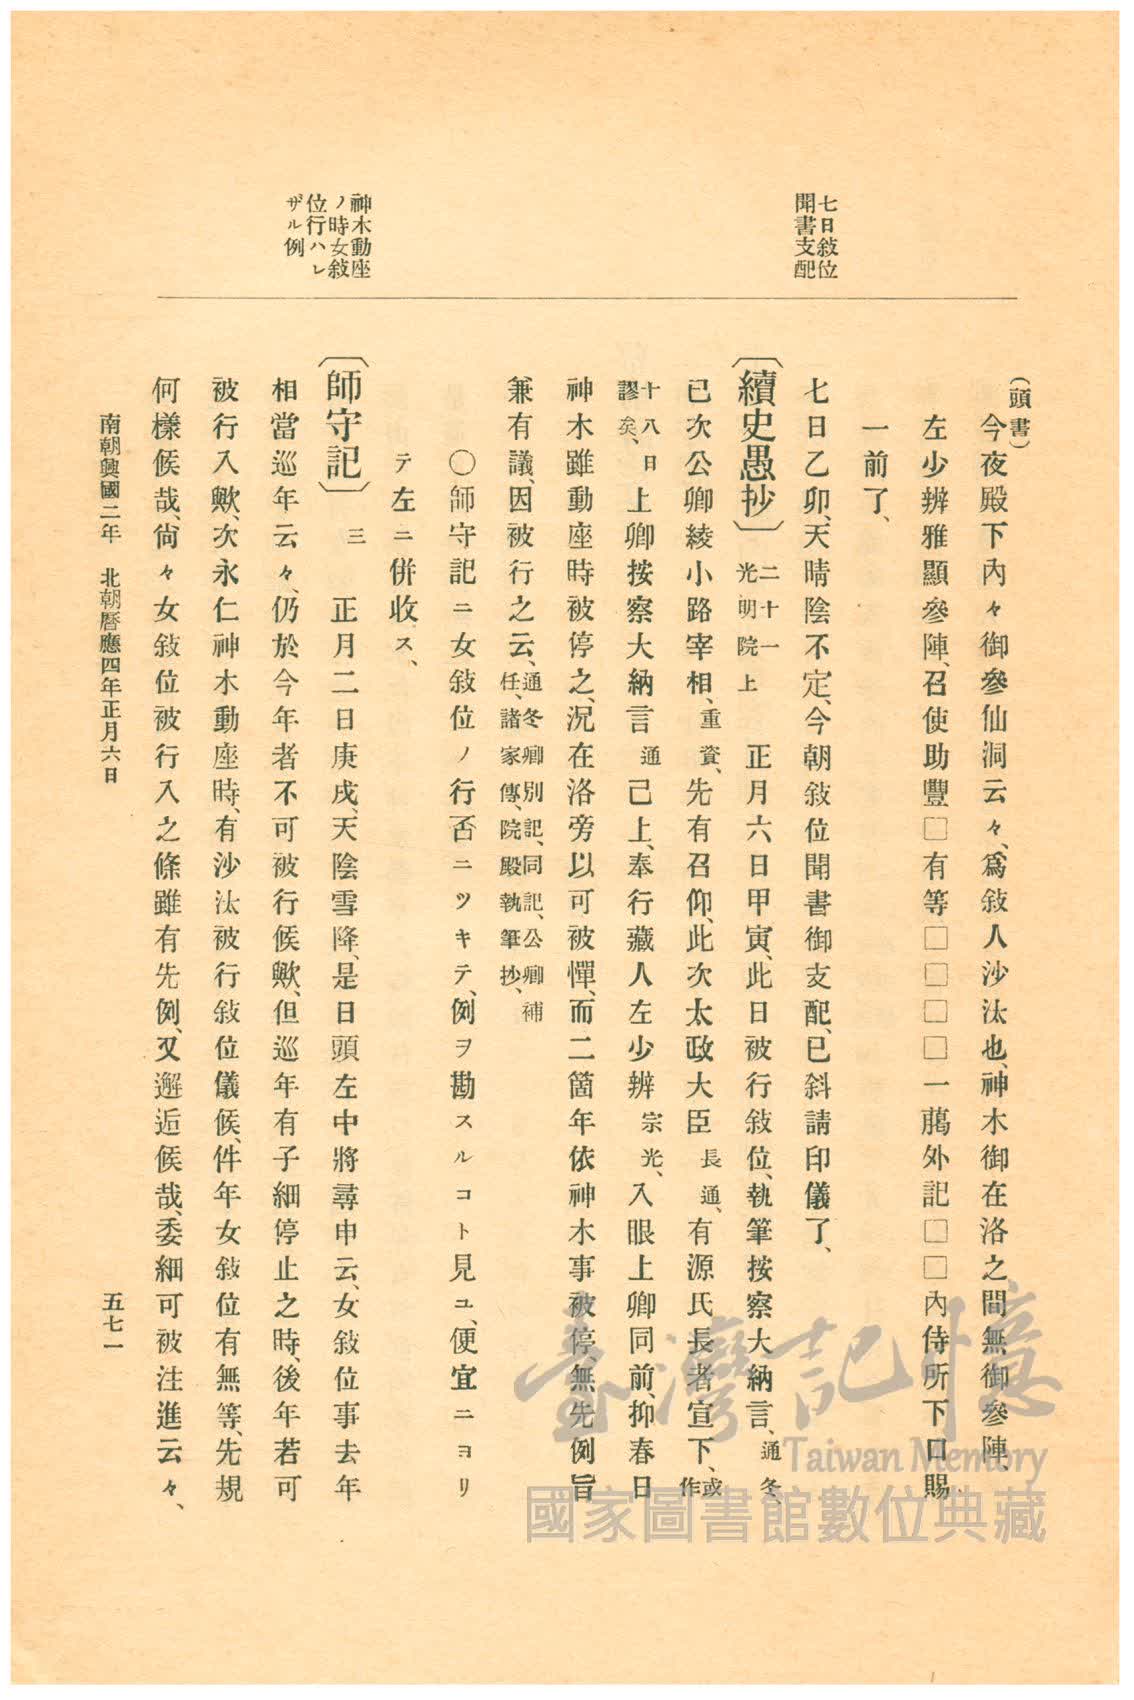 七日敍位
聞書支配
神木動座
ノ時女敍
位行ハレ
ザル例
(頭書)
今夜殿下內々御參仙洞云々、爲敍人沙汰也、神木御在洛之間無御參陣、
左少辨雅顯參陣、召使助豐□有等□□□□一﨟外記□□內侍所下口賜
一前了、
七日乙卯、天晴陰不定、今朝敍位聞書御支配、已斜請印儀了、
〔續史愚抄〕二十一 光明院上 正月六日甲寅、此日被行敍位、執筆按察大納言、通冬、
已次公卿綾小路宰相、重資、先有召仰、此次太政大臣長通、有源氏長者宣下、或作
十八日謬矣、上卿按察大納言通己上、奉行藏人左少辨宗光、入眼上卿同前、抑春日
神木雖動座時被停之、況在洛旁以可被憚、而二箇年依神木事被停無先例旨
兼有議、因被行之云、通冬卿別記、同記、公卿補任、諸家傳、院殿執筆抄、
〇師守記ニ女敍位ノ行否ニツキテ、例ヲ勘スルコト見ユ、便宜ニヨリ
テ左ニ併收ス、
〔師守記〕三 正月二日庚戌、天陰雪降、是日頭左中將尋申云、女敍位事去年
相當巡年云々、仍於今年者不可被行候歟、但巡年有子細停止之時、後年若可
被行入歟、次永仁神木動座時、有沙汰被行敍位儀候、件年女敍位有無等、先規
何樣候哉、尙々女敍位被行入之條雖有先例、又邂逅候哉、委細可被注進云々、
南朝興國二年 北朝曆應四年正月六日
五七一
臺灣記憶
Taiwan Memory
國家圖書館數位典藏